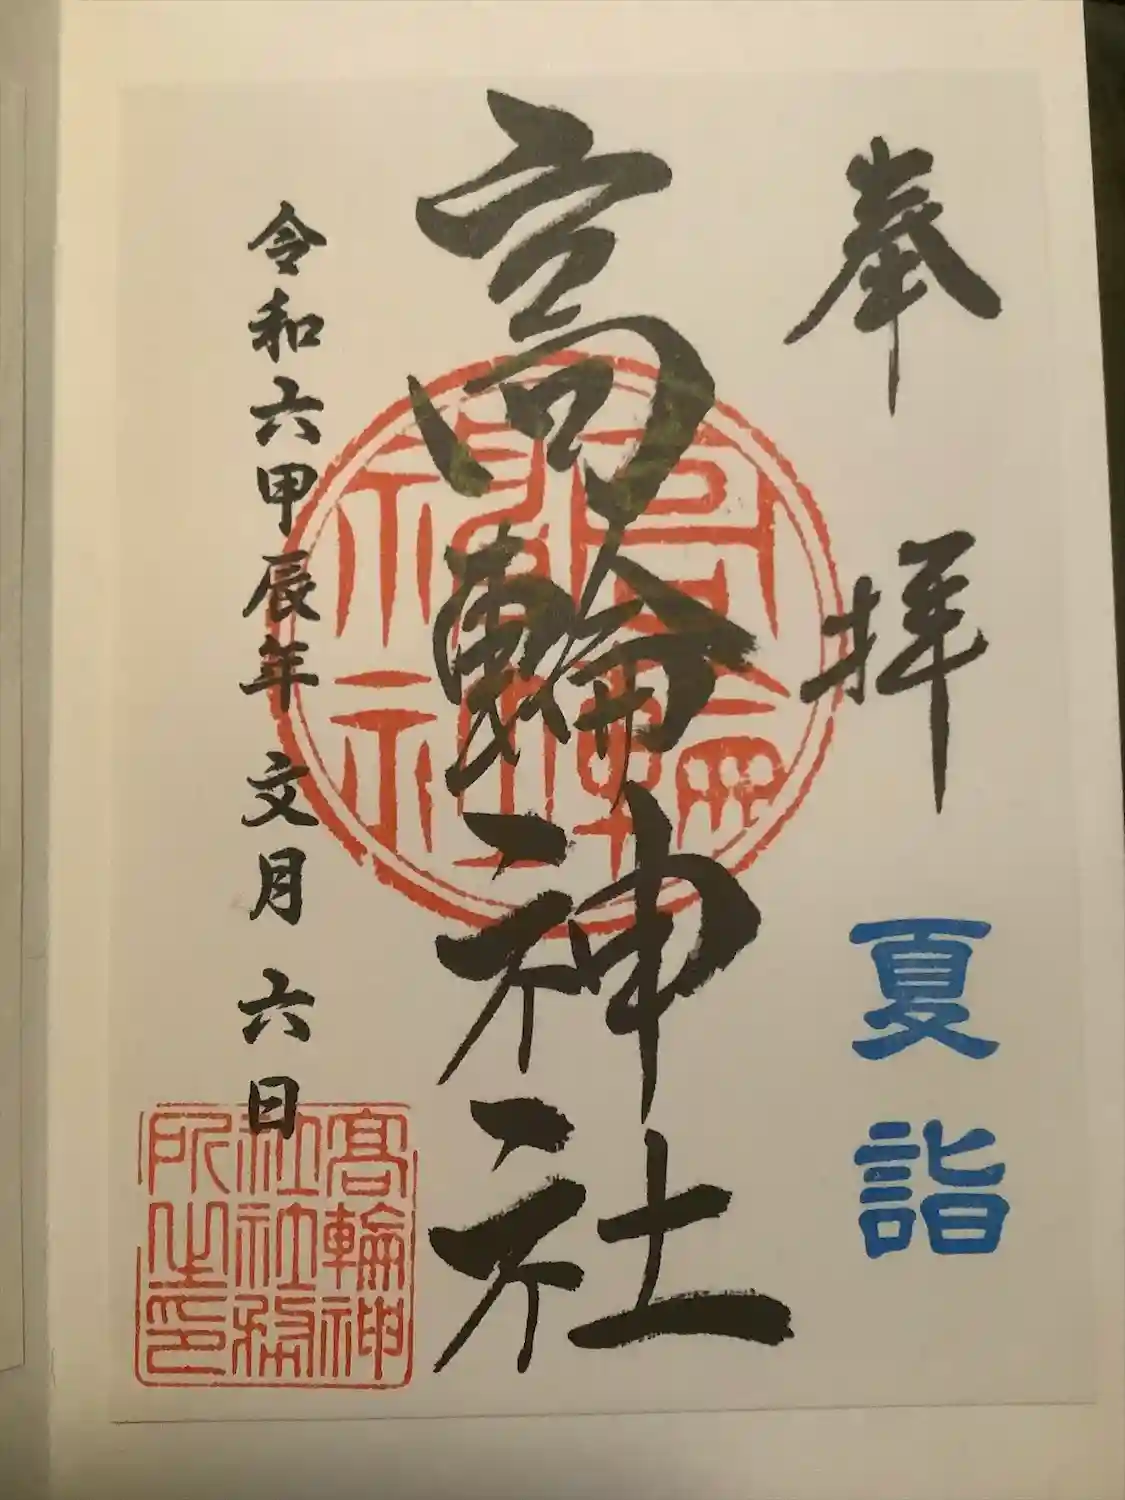 奉拝
夏詣
高輪神社
令和六甲辰年 文月 六日
高輪
神社
高輪神
社社務
所之印